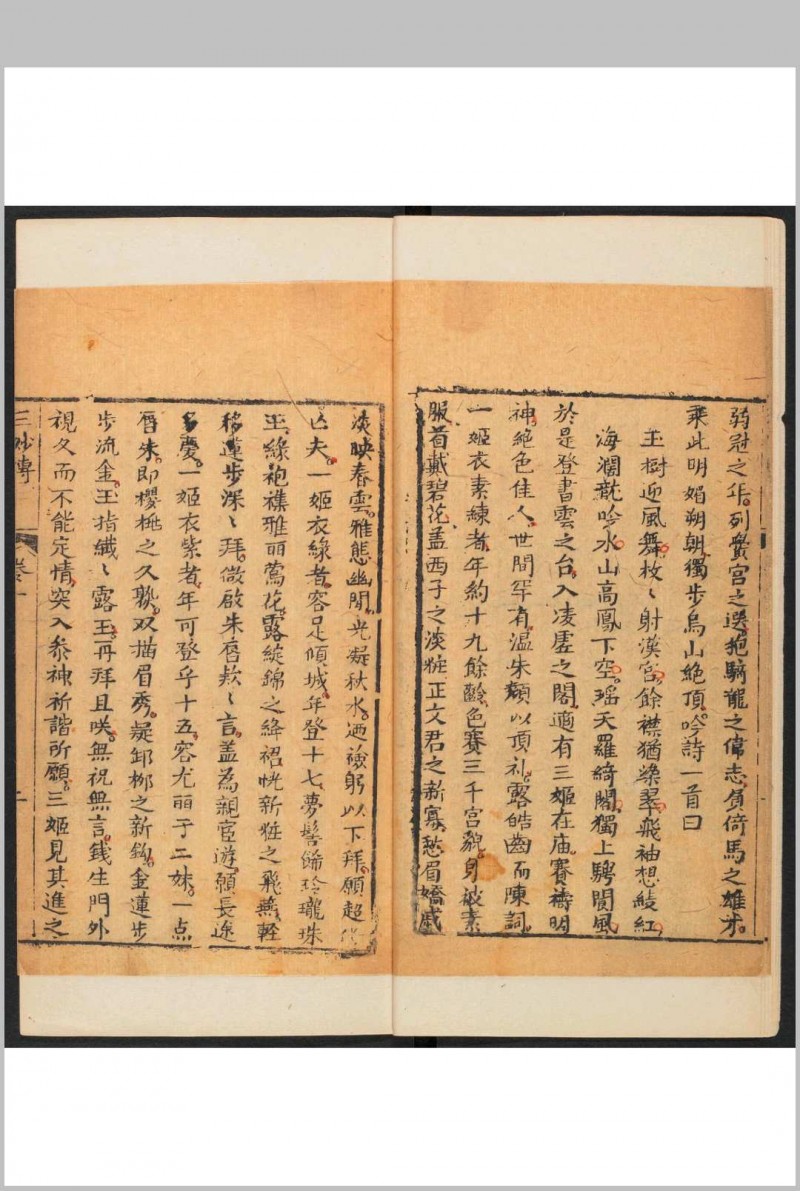 弱冠之年。列黌宫之选。抱騎龍之偉志。負倚馬之雄才。
乘此明媚朔朝。獨步烏山絶頂。吟詩一首曰
玉樹迎風舞。枚〻射漢宫。餘襟猶染翠。飛袖想綾紅。
海濶龍吟水。山高鳳下空。瑶天羅綺閣。獨上騁閬風。
於是登書雲之台。入凌虗之閣。適有三姬在庙賽禱明
神。絶色佳人。世間罕有。温朱顏以頂礼。露皓齒而陳詞。
一姬衣素練者。年約十九餘齡。色賽三千宫貌。身被素
服。首戴碧花。盖西子之淡粧。正文君之新寡。愁眉嬌慼
淡映春雲。雅態幽閒。光凝秋水。迺歛躬以下拜。願超
亡夫。一姬衣緑者。容足傾城。年登十七。夢髻飾玲瓏珠
玉。緑袍襍雅丽鶯花。露綻錦之絳裙。恍新粧之飛燕。輕
移蓮步深〻拜。微啟朱唇欵〻言。盖為親宦遊。願長途
多慶。一姬衣紫者。年可登乎十五。容尤丽于二妹。一点
唇朱。即櫻桃之久熟。双描眉秀。疑卸柳之新鈎。金蓮步
步流金。玉指纎〻露玉。再拜且咲。無祝無言。錢生門外
視久而不能定情。突入叅神。祈諧所願。三姬見其進之
三妙傳
卷一
二